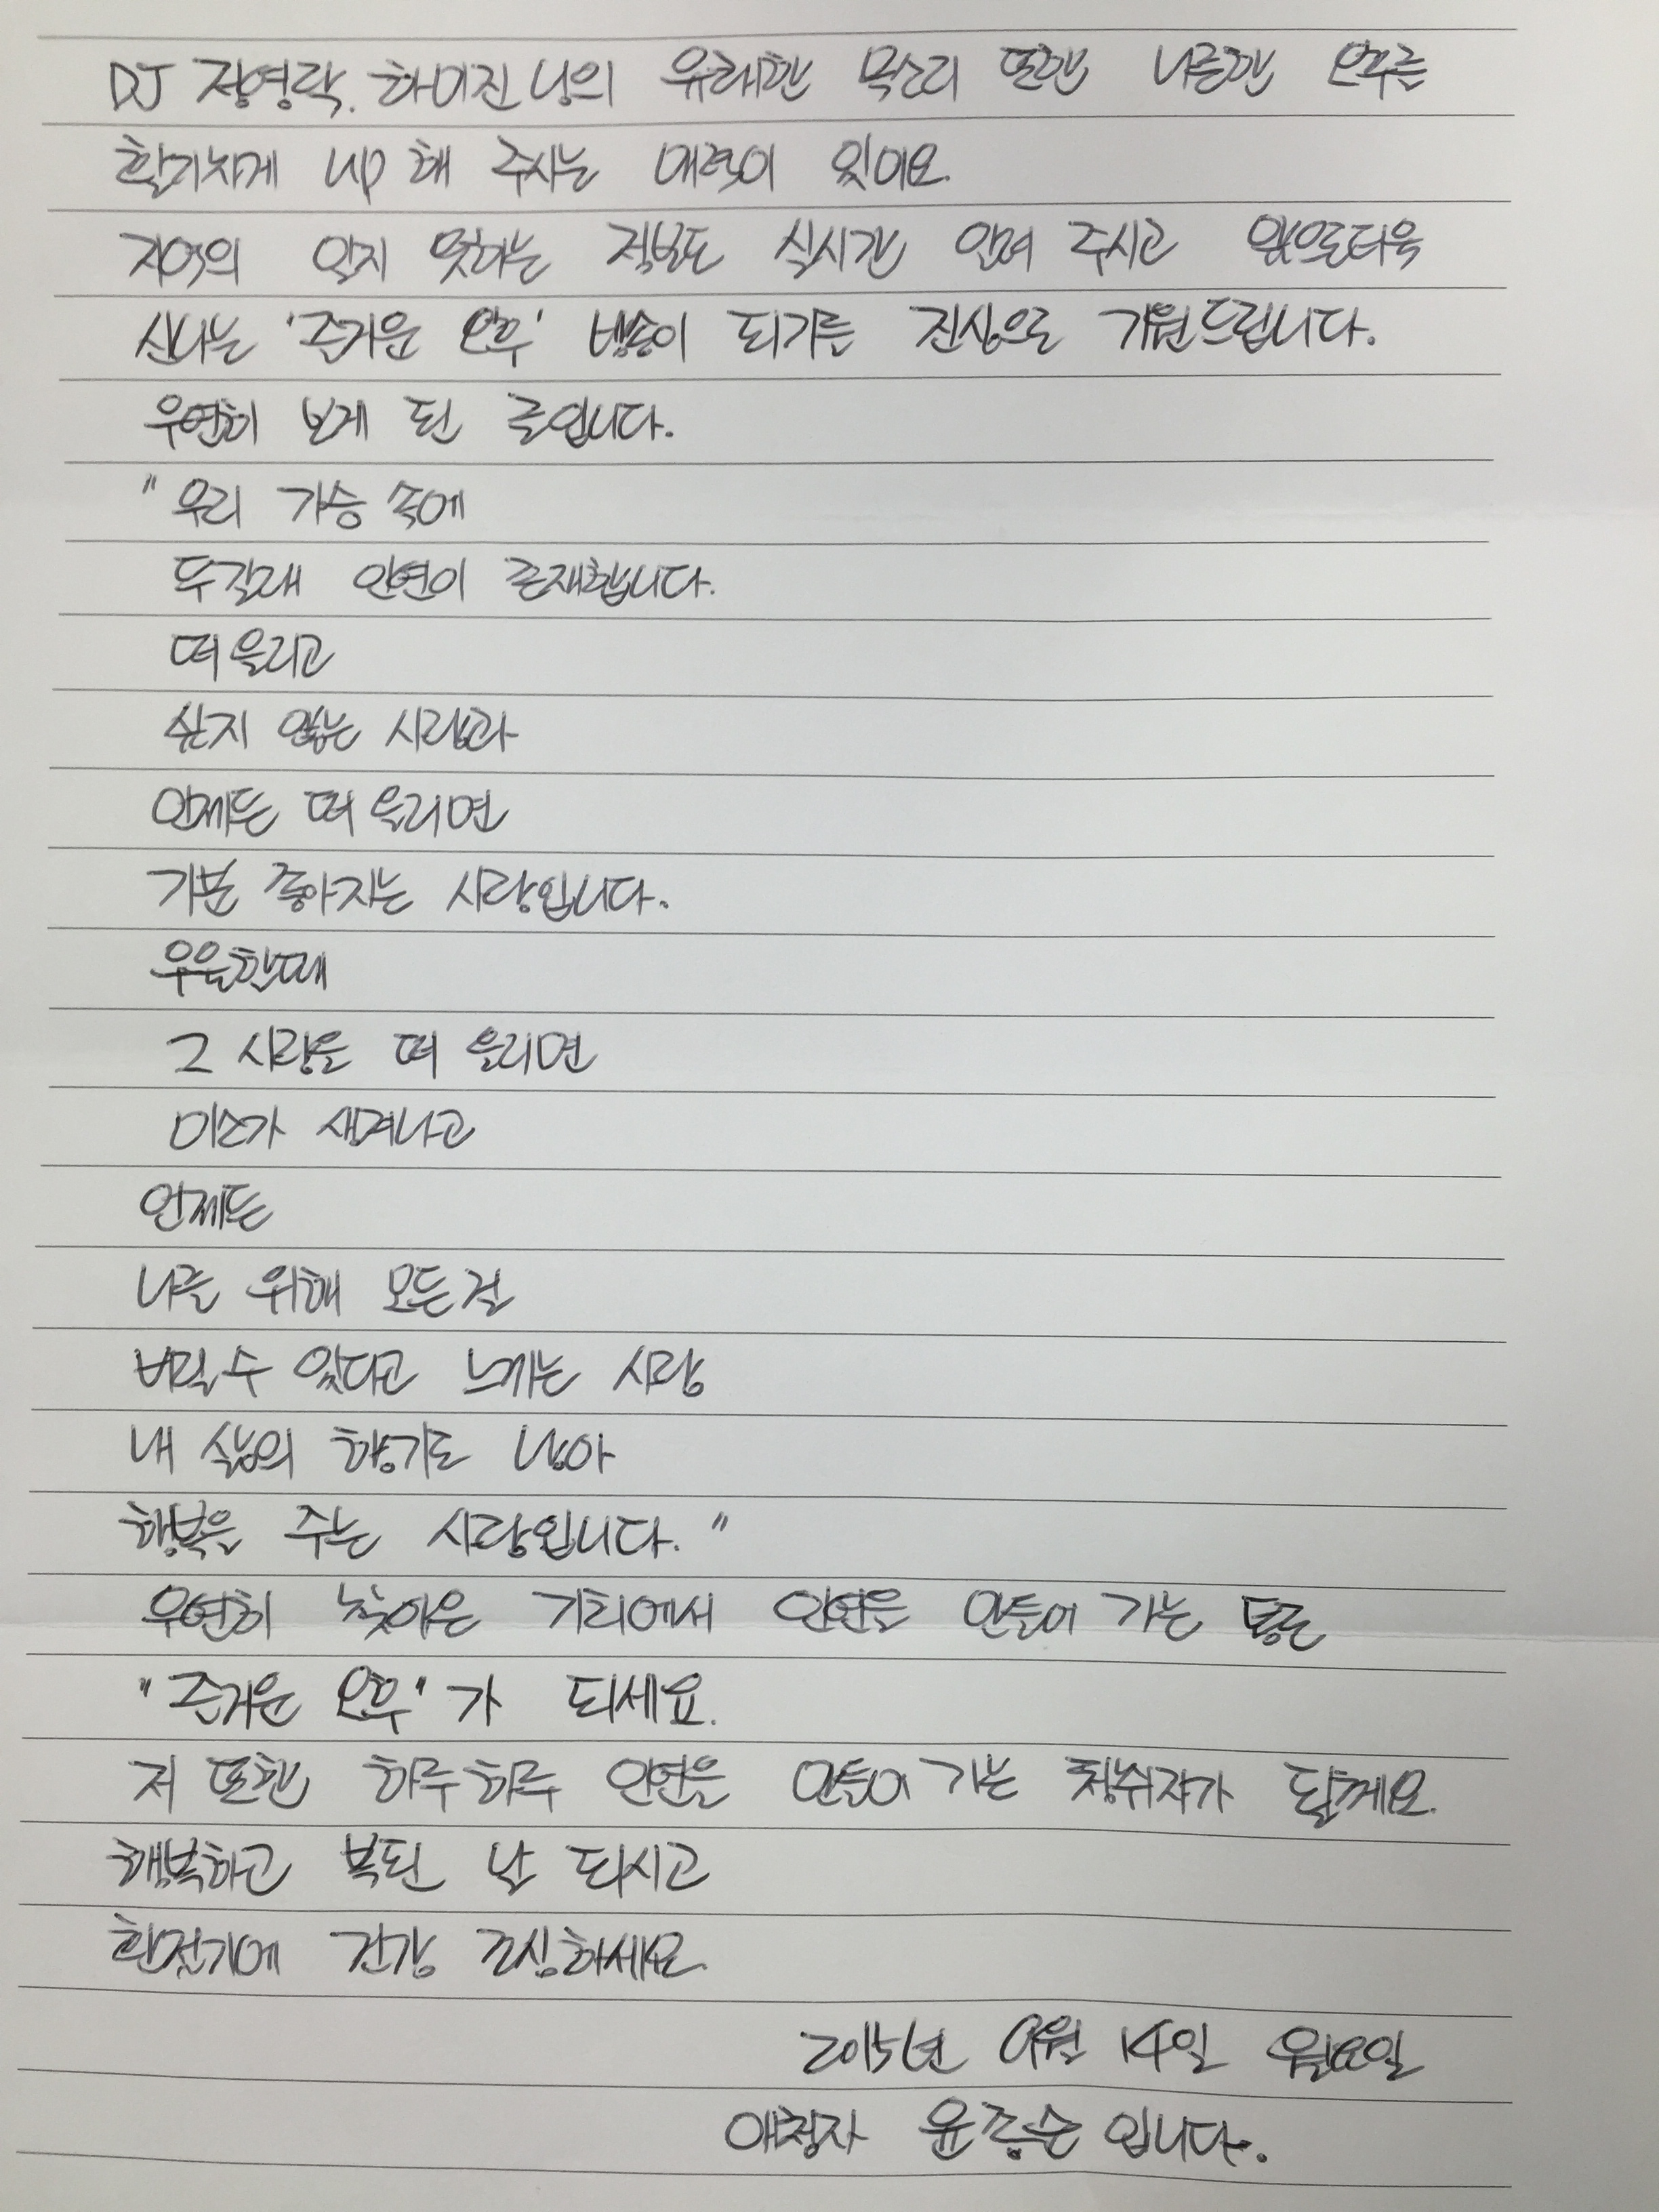 DJ 정영락. 하이진님의 유쾌한 목소리 또한 나른한 오후를
활기차게 up 해 주시는 매력이 있어요.
지역의 알지 못하는 정보도 실시간 알려 주시고 앞으로더욱
신나는 '즐거운 오후' 방송이 되기를 진심으로 기원드립니다.
우연히 보게 된 글입니다.
"우리 가슴 속에
두갈래 인연이 존재합니다.
떠 올리고
싶지 않는 사람과
언제든 떠 올리면
기분 좋아지는 사람입니다.
우울할때
그 사람을 떠 올리면
미소가 생겨나고
언제든
나를 위해 모든걸
버릴 수 있다고 느끼는 사람
내 삶의 향기로 남아
행복을 주는 사람입니다."
우연히 찾아온 기회에서 인연을 만들어 가는
"즐거운 오후"가 되세요.
저 또한 하루하루 인연을 만들어 가는 청취자가 될께요.
행복하고 복된 날 되시고
환절기에 건강 조심하세요.
2015년 9월 14일 월요일
애청자 윤종순 입니다.